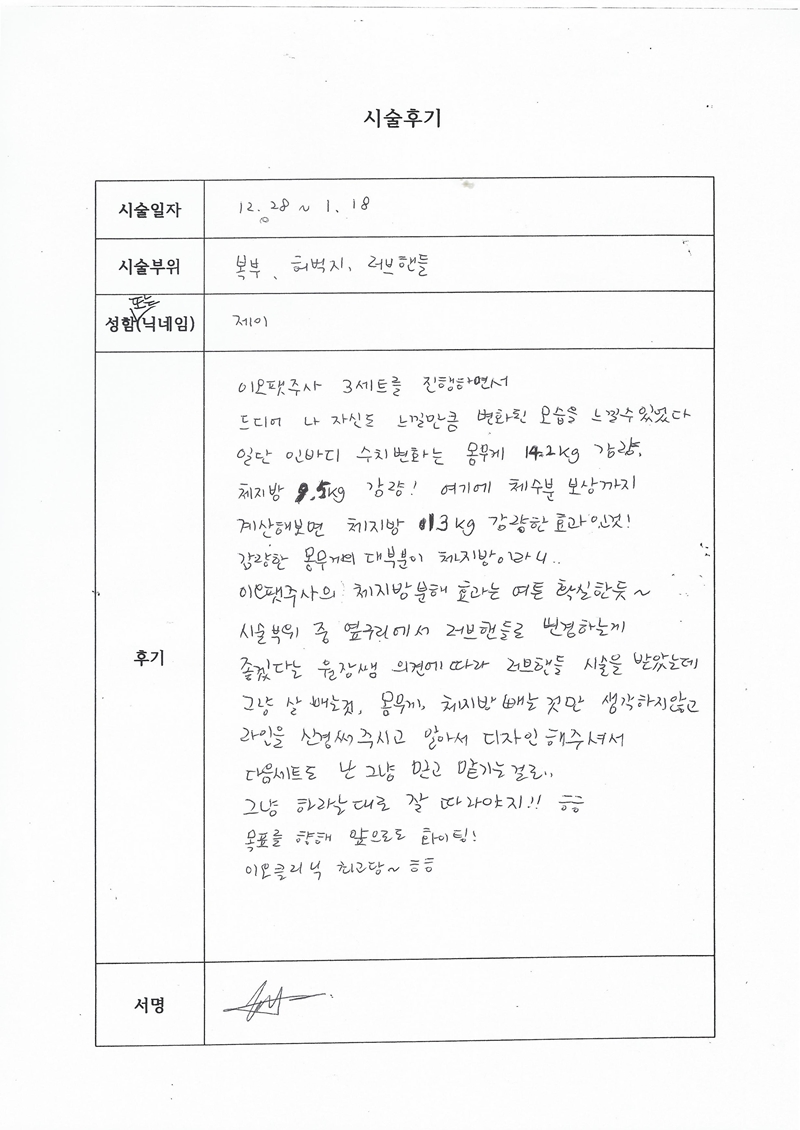 시술후기
시술일자 12. 28 ~ 1. 18
시술부위 복부, 허벅지, 러브핸들
또는
성함(닉네임) 제이
이오팻주사 3세트를 진행하면서
드디어 나 자신도 느낄만큼 변화된 모습을 느낄수있었다
일단 인바디 수치변화는 몸무게 14.2kg 감량,
체지방 9.5kg 감량! 여기에 체수분 보상까지
계산해보면 체지방 13kg 감량한 효과인것!
감량한 몽무게의 대부분이 체지방이라니..
이오팻주사의 체지방분해 효과는 여튼 확실한듯~
시술부위 중 옆구리에서 러브핸들로 변경하는게
좋겠다는 원장쌤 의견에따라 러브핸들 시술을 받았는데
후기
그냥 살 빼는것, 몸무게, 체지방 빼는 것만 생각하지않고
라인을 신경써주시고 알아서 디자인해주셔서
다음세트도 난 그냥 믿고 맡기는걸로..
그냥 하라는대로 잘 따라야지!! ㅎㅎ
목표를 향해 앞으로도 화이팅!
이오클리닉 최고당~ ㅎㅎ
서명